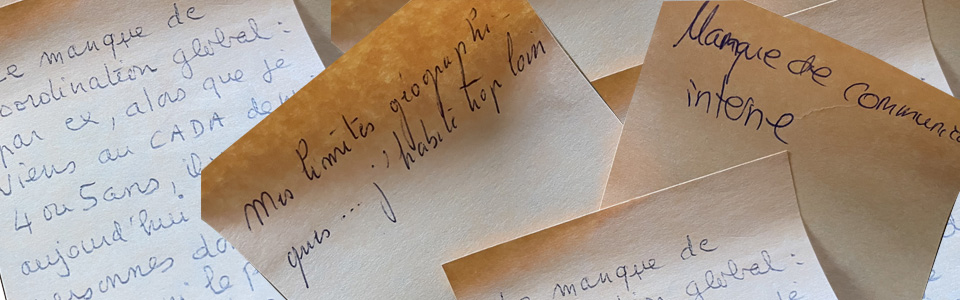 Le manque de
coordination global :
par ex, alors que je
viens au CADA
4 ou 5 ans,
aujourd'hui
personnes
le
Mes limites géographi-
ques .... j'habite trop loin
Manque de
interne
manque de
global :